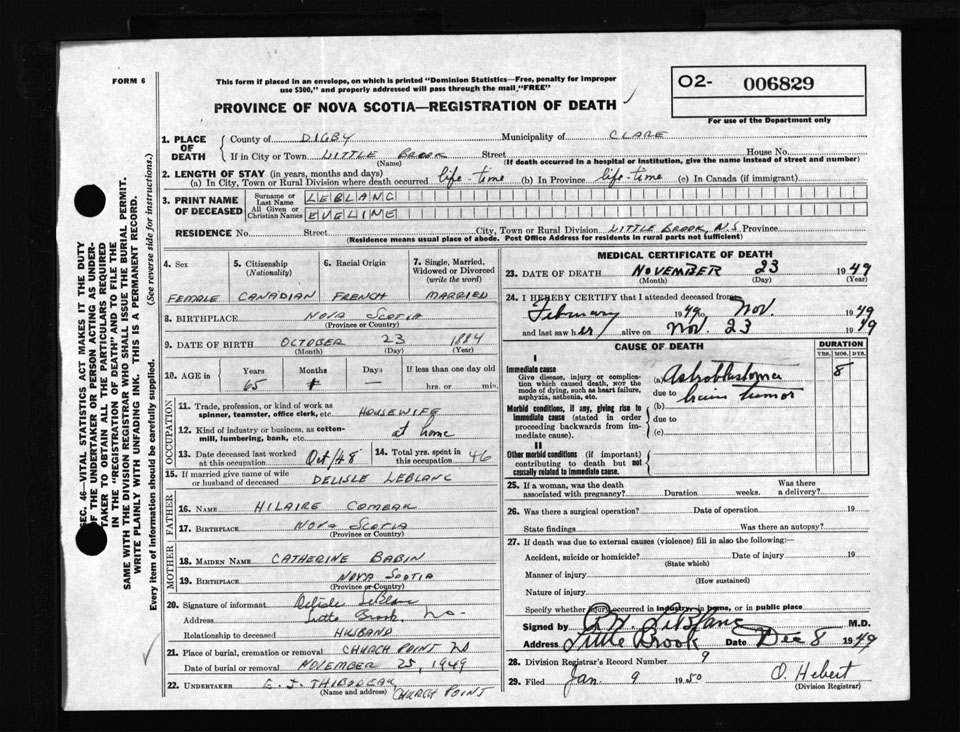 FORM 6
This form if placed in an envelope, on which is printed "Dominion Statistics—Free, penalty for improper
use $300," and properly addressed will pass through the mail "FREE"
PROVINCE OF NOVA SCOTIA—REGISTRATION OF DEATH
O2- 006829
For use of the Department only
1. PLACE OF DEATH
County of DIGBY Municipality of CLARE
If in City or Town LITTLE BROOK Street House No.
(Name) (If death occurred in a hospital or institution, give the name instead of street and number)
2. LENGTH OF STAY (in years, months and days)
(a) In City, Town or Rural Division where death occurred life-time (b) In Province life-time (c) In Canada (if immigrant)
3. PRINT NAME OF DECEASED
Surname or Last Name LEBLANC
All Given or Christian Names EVELINE
RESIDENCE No. Street City, Town or Rural Division LITTLE BROOK, N.S Province
(Residence means usual place of abode. Post Office Address for residents in rural parts not sufficient)
4. Sex 5. Citizenship (Nationality) 6. Racial Origin 7. Single, Married, Widowed or Divorced (write the word)
FEMALE CANADIAN FRENCH MARRIED
8. BIRTHPLACE NOVA SCOTIA
(Province or Country)
9. DATE OF BIRTH OCTOBER 23 1884
(Month) (Day) (Year)
10. AGE in Years Months Days If less than one day old
65 1 — hrs. or min.
OCCUPATION
11. Trade, profession, or kind of work as
spinner, teamster, office clerk, etc. HOUSEWIFE
12. Kind of industry or business, as cotton-
mill, lumbering, bank, etc. at home
13. Date deceased last worked
at this occupation Oct/48
14. Total yrs. spent in
this occupation 46
15. If married give name of wife
or husband of deceased DELISLE LEBLANC
FATHER
16. NAME HILAIRE COMEAU
17. BIRTHPLACE NOVA SCOTIA
(Province or Country)
MOTHER
18. MAIDEN NAME CATHERINE BABIN
19. BIRTHPLACE NOVA SCOTIA
(Province or Country)
20. Signature of informant Delisle LeBlanc
Address Little Brook, NS
Relationship to deceased HUSBAND
21. Place of burial, cremation or removal CHURCH POINT NS
Date of burial or removal NOVEMBER 25, 1949
22. UNDERTAKER E. J. THIBODEAU CHURCH POINT
(Name and address)
MEDICAL CERTIFICATE OF DEATH
23. DATE OF DEATH NOVEMBER 23 1949
(Month) (Day) (Year)
24. I HEREBY CERTIFY that I attended deceased from
February 1949 to Nov. 1949
and last saw her alive on Nov. 23 1949
CAUSE OF DEATH DURATION
YRS. MOS. DYS.
I
Immediate cause
Give disease, injury or complica-
tion which caused death, NOT the
mode of dying, such as heart failure,
asphyxia, asthenia, etc.
(a) 8
due to brain tumor
Morbid conditions, if any, giving rise to
immediate cause (stated in order
proceeding backwards from im-
mediate cause).
(b)
due to
(c)
II
Other morbid conditions (if important)
contributing to death but not
causally related to immediate cause.
25. If a woman, was the death
associated with pregnancy? Duration weeks. Was there
a delivery?
26. Was there a surgical operation? Date of operation 19
State findings Was there an autopsy?
27. If death was due to external causes (violence) fill in also the following:—
Accident, suicide or homicide? Date of injury 19
(State which)
Manner of injury
(How sustained)
Nature of injury
Specify whether injury occurred in industry, in home, or in public place
Signed by LeBlanc M.D.
Address Little Brook Date Dec 8 1949
28. Division Registrar's Record Number 9
29. Filed Jan. 9 1950 O. Hebert
(Division Registrar)
SEC. 46—VITAL STATISTICS ACT MAKES IT THE DUTY
OF THE UNDERTAKER OR PERSON ACTING AS UNDER-
TAKER TO OBTAIN ALL THE PARTICULARS REQUIRED
IN THE "REGISTRATION OF DEATH" AND TO FILE THE
SAME WITH THE DIVISION REGISTRAR WHO SHALL ISSUE THE BURIAL PERMIT.
WRITE PLAINLY WITH UNFADING INK. THIS IS A PERMANENT RECORD.
Every item of information should be carefully supplied. (See reverse side for instructions.)